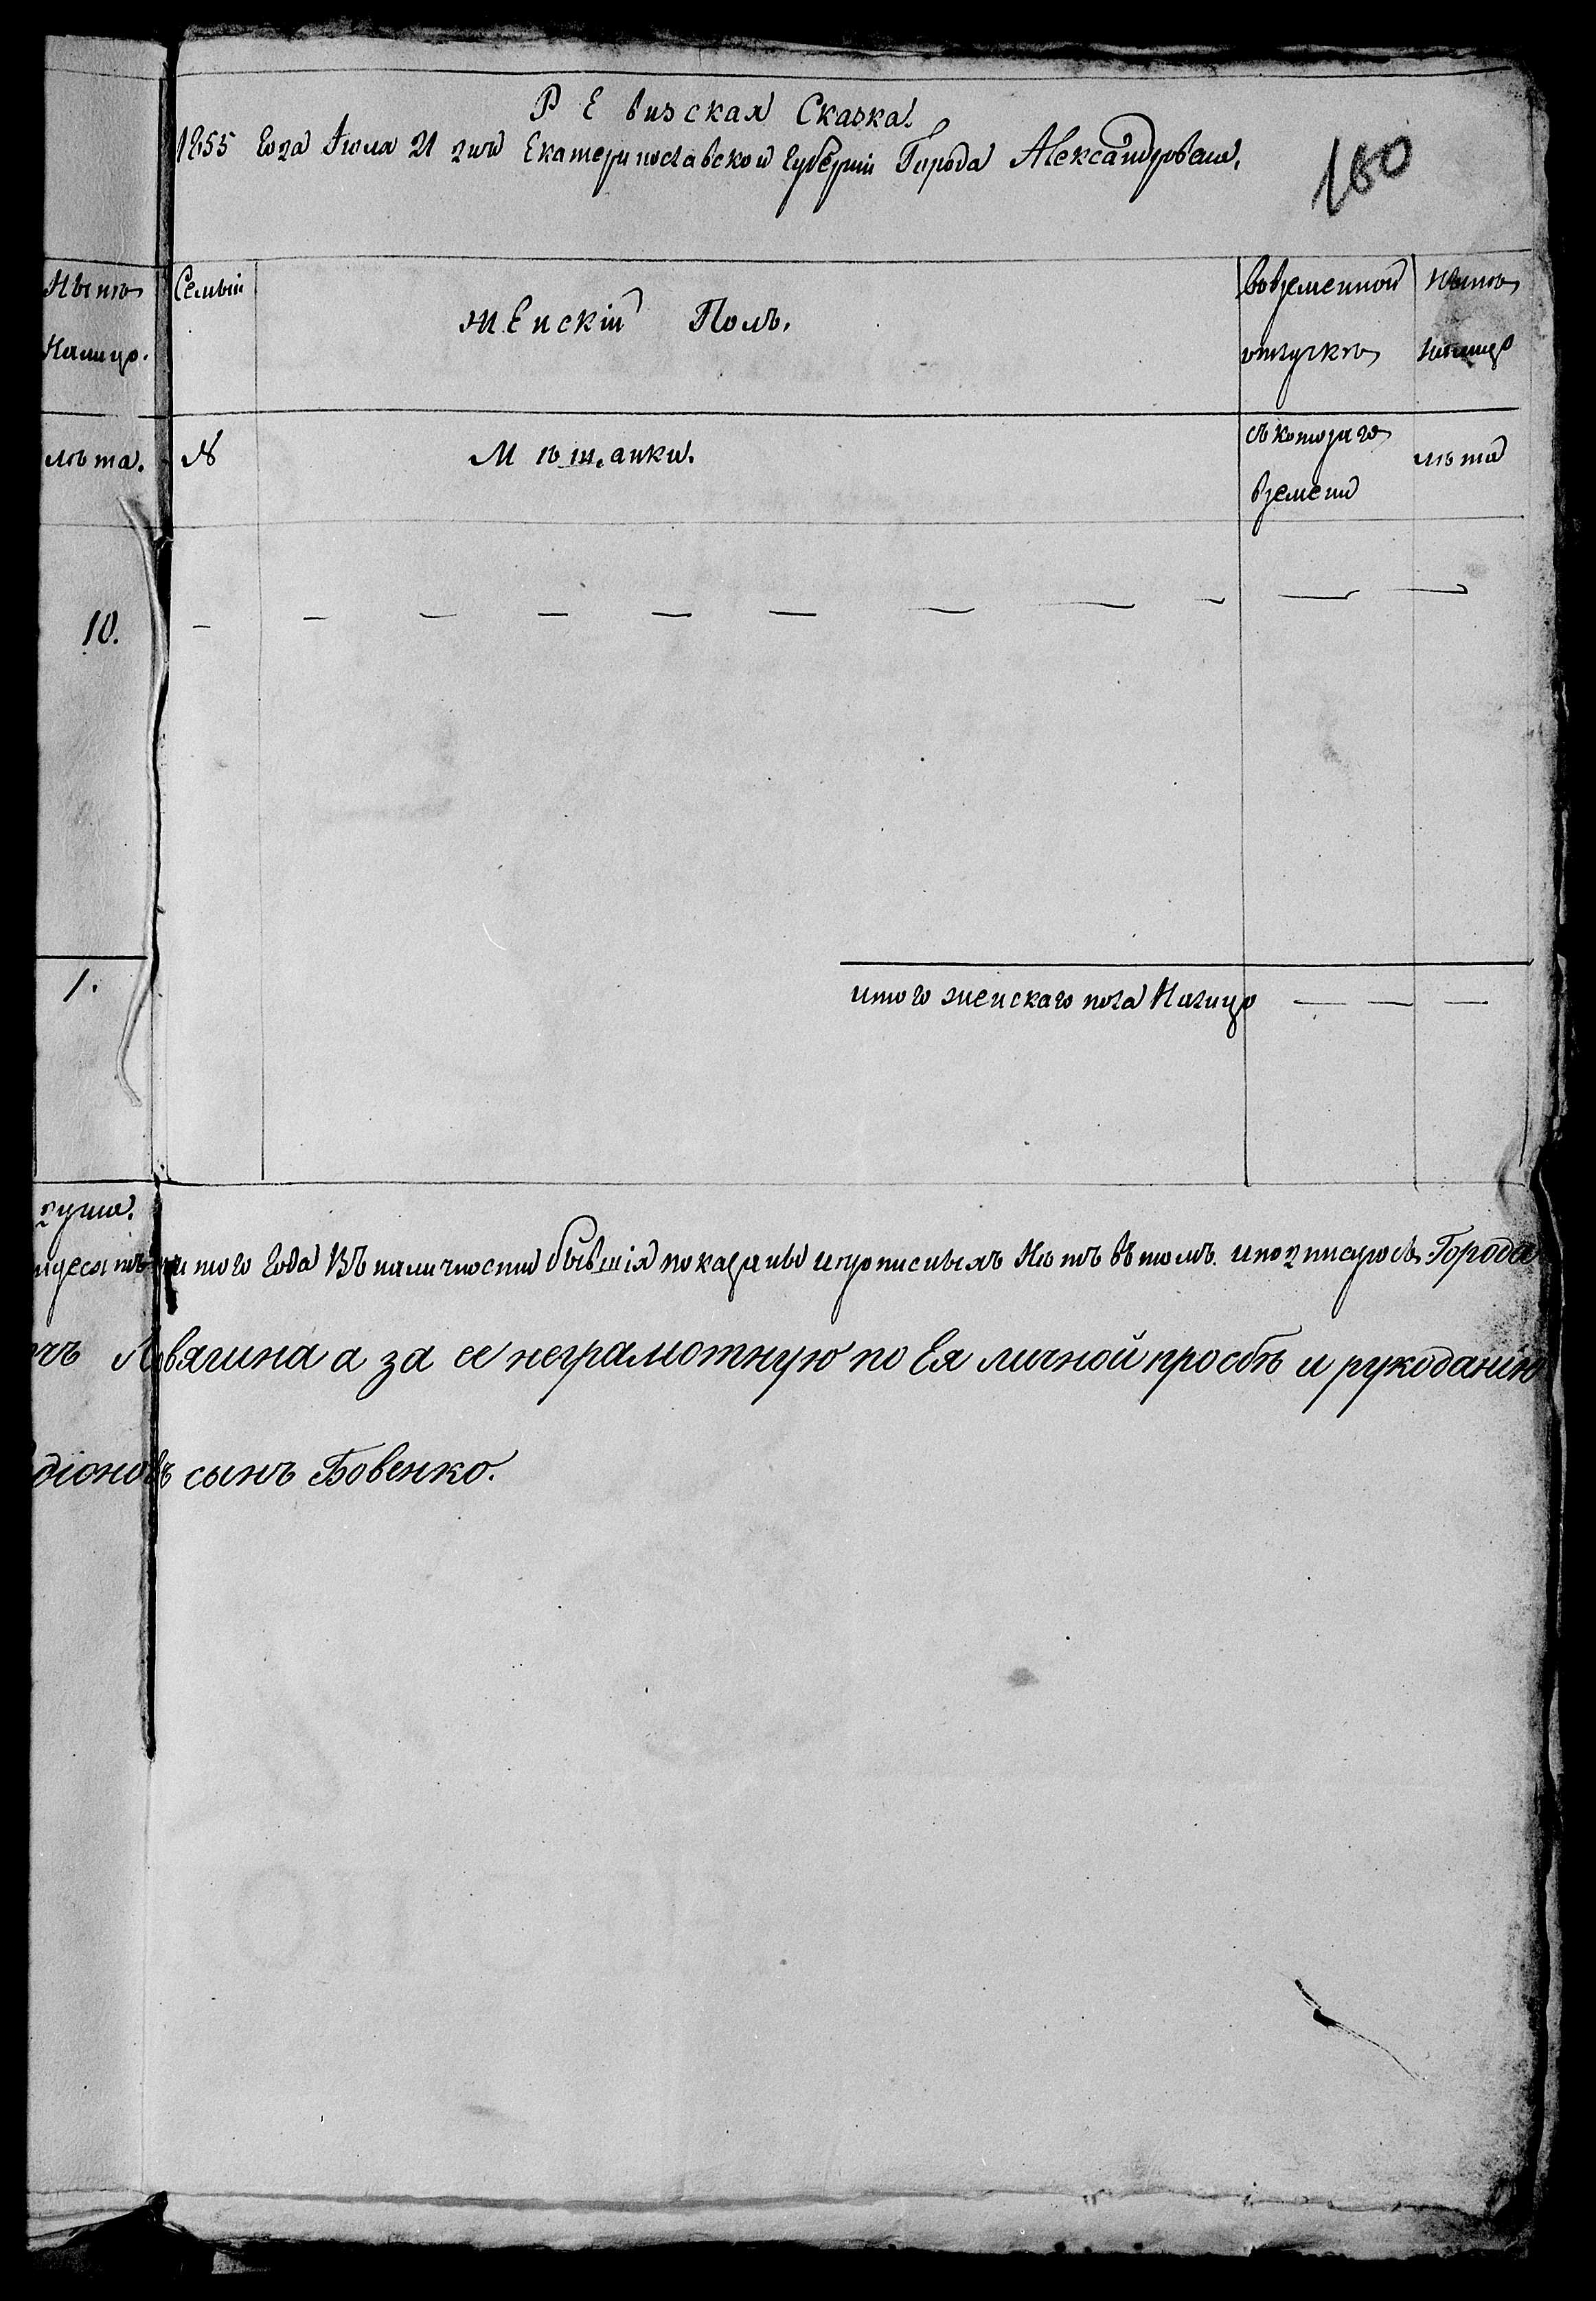 РЕвизская Сказка.
1855 года Июля 21 дня Екатеринославской Губерніи Города Александровска.
180
Нынѣ
Налицо.
Семьи
ЖЕнскій Полъ.
Вовременной
отлучкѣ
Нынѣ
Налицо
лѣта.
№
Мѣщанки.
съ котораго
времени
лѣта
10. — — — — — — — — — — —
1.
итого женскаго пола Налицо — — —
душа.
того года Въ наличности бывшія показаны ипрописныхъ Нѣтъ вътомъ. иподписуюсь Города
вягина а за ее неграмотную по Ея личной просбѣ и рукоданію
діоновъ сынъ Бовенко.